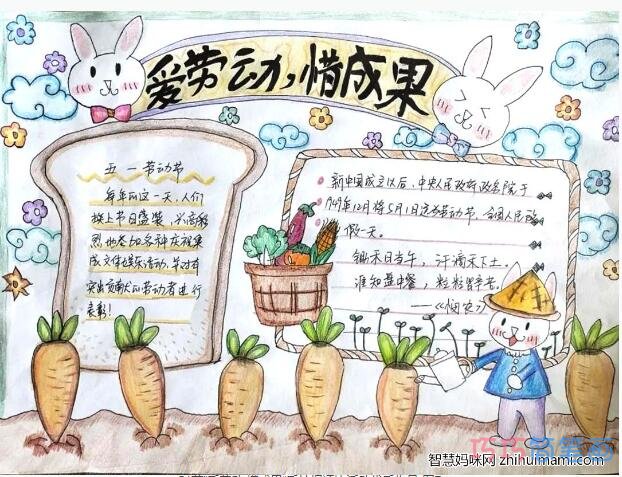 爱劳动,惜成果
五一劳动节
每年的这一天,人们
换上节日盛装,兴高采
烈地参加各种庆祝集
或文体娱乐活动,并对有
突出贡献的劳动者进行
表彰!
新中国成立以后,中央人民政府政务院于
1949年12月将5月1日定为劳动节,全国人民
假一天。
锄禾日当午,汗滴禾下土。
谁知盘中餐,粒粒皆辛苦。
——《悯农》
智慧妈咪网 zhihuimami.com